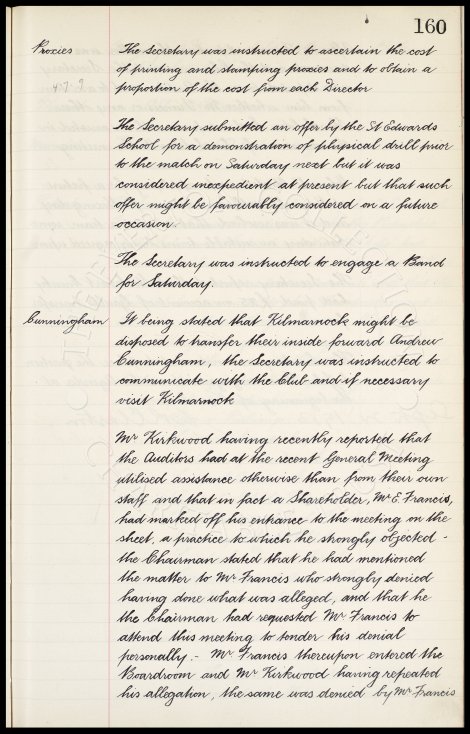 160
Proxies
The Secretary was instructed to ascertain the cost
of printing and stamping proxies and to obtain a
proportion of the cost from each Director
The Secretary submitted an offer by the St Edwards
School for a demonstration of physical drill prior
to the match on Saturday next but it was
considered inexpedient at present but that such
offer might be favourably considered on a future
occasion.
The Secretary was instructed to engage a Band
for Saturday.
Cunningham
It being stated that Kilmarnock might be
disposed to transfer their inside forward Andrew
Cunningham, the Secretary was instructed to
communicate with the Club and if necessary
visit Kilmarnock
Mr Kirkwood having recently reported that
the Auditors had at the recent General Meeting
utilised assistance otherwise than from their own
staff and that in fact a Shareholder, Mr E. Francis,
had marked off his entrance to the meeting on the
sheet, a practice to which he strongly objected -
the Chairman stated that he had mentioned
the matter to Mr Francis who strongly denied
having done what was alleged, and that he
the Chairman had requested Mr Francis to
attend this meeting to tender his denial
personally. - Mr Francis thereupon entered the
Boardroom and Mr Kirkwood having repeated
his allegation, the same was denied by Mr Francis